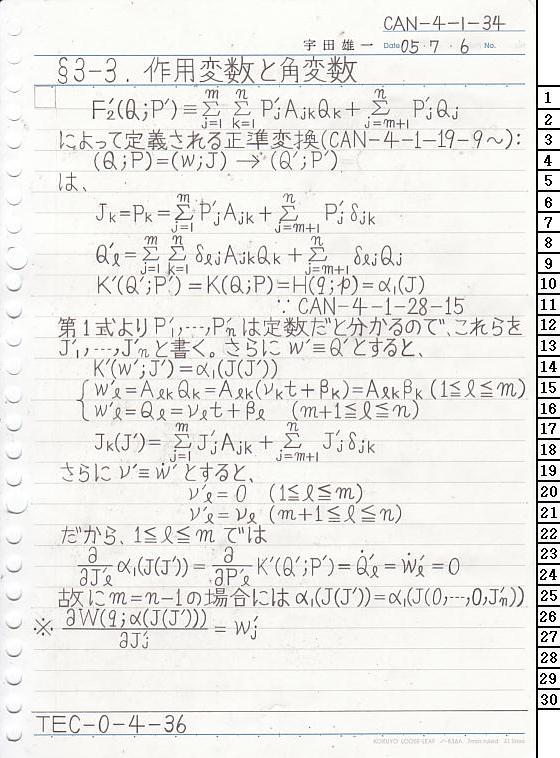 CAN-4-1-34
宇田雄一 Date 05・7・6 No.
§3-3. 作用変数と角変数
F₂'(Q;P')≡Σ_{j=1}^{m} Σ_{k=1}^{n} P'_j A_{jk} Q_k + Σ_{j=m+1}^{n} P'_j Q_j
によって定義される正準変換(CAN-4-1-19-9~):
(Q;P)=(w;J)→(Q';P')
は、
J_k=P_k=Σ_{j=1}^{m} P'_j A_{jk} + Σ_{j=m+1}^{n} P'_j δ_{jk}
Q'_ℓ=Σ_{j=1}^{m} Σ_{k=1}^{n} δ_{ℓj} A_{jk} Q_k + Σ_{j=m+1}^{n} δ_{ℓj} Q_j
K'(Q';P')=K(Q;P)=H(q;p)=α₁(J)
∵ CAN-4-1-28-15
第1式よりP'₁,…,P'_nは定数だと分かるので、これらを
J'₁,…,J'_nと書く。さらにw'≡Q'とすると、
K'(w';J')=α₁(J(J'))
{ w'_ℓ=A_{ℓk}Q_k=A_{ℓk}(ν_k t+β_k)=A_{ℓk}β_k (1≦ℓ≦m)
w'_ℓ=Q_ℓ=ν_ℓ t+β_ℓ (m+1≦ℓ≦n)
J_k(J')=Σ_{j=1}^{m} J'_j A_{jk} + Σ_{j=m+1}^{n} J'_j δ_{jk}
さらにν'≡ẇ'とすると、
ν'_ℓ=0 (1≦ℓ≦m)
ν'_ℓ=ν_ℓ (m+1≦ℓ≦n)
だから、1≦ℓ≦mでは
∂/∂J'_ℓ α₁(J(J'))=∂/∂P'_ℓ K'(Q';P')=Q̇'_ℓ=ẇ'_ℓ=0
故にm=n-1の場合にはα₁(J(J'))=α₁(J(0,…,0,J'_n))
※ ∂W(q;α(J(J')))/∂J'_j = w'_j
TEC-0-4-36
KOKUYO LOOSE-LEAF ノ-836A 7mm ruled 31 lines
1
2
3
4
5
6
7
8
9
10
11
12
13
14
15
16
17
18
19
20
21
22
23
24
25
26
27
28
29
30